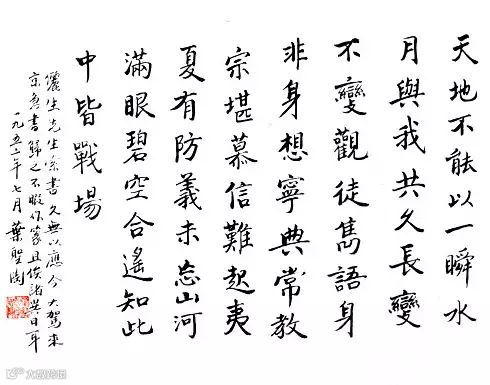 天地不能以一瞬水
月與我共久長變
不變觀徒雋語身
非身想寧典常教
宗堪慕信難起夷
夏有防義未忘山河
滿眼碧空合遙知此
中皆戰場
先生索書久無以應今大駕來
京急書歸之不暇作篆且俟諸異日耳
一九五一年七月葉聖陶
大数跨境